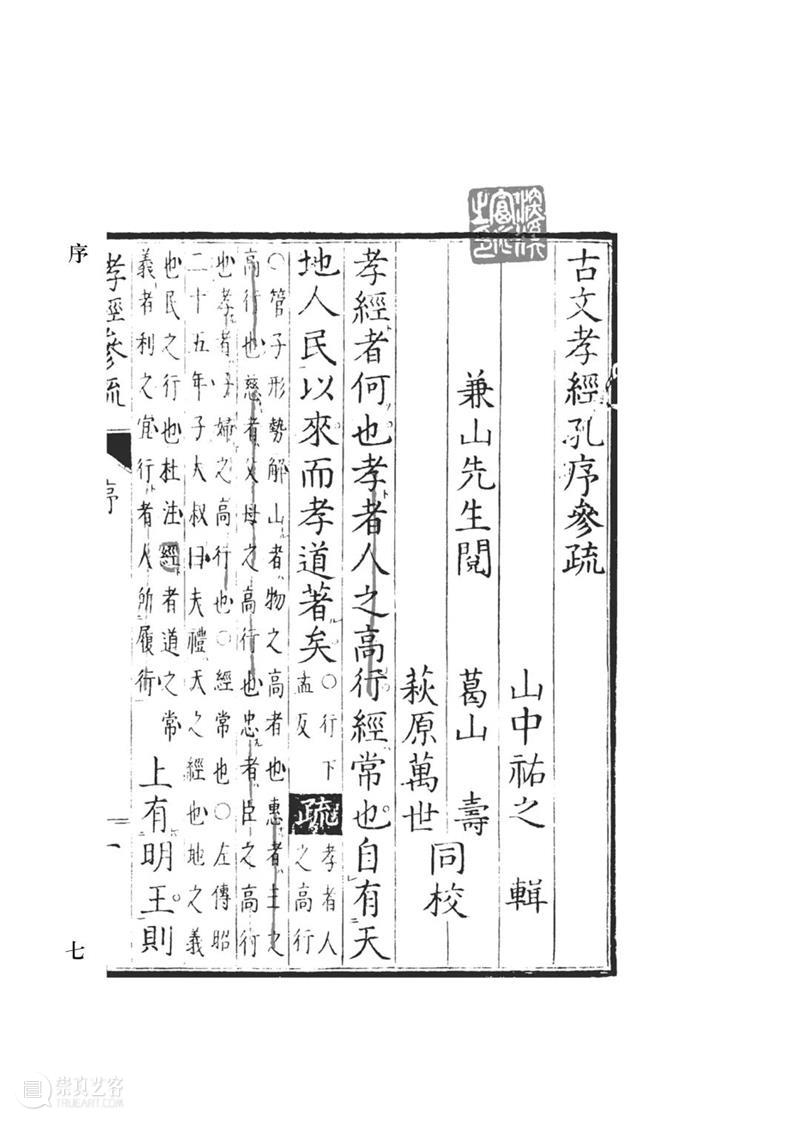 古文孝經孔序參疏
山中祐之 輯
兼山先生閱 葛山 壽
萩原萬世 同校
孝經者何也孝者人之高行經常也自有天
地人民以來而孝道著矣 ○行下
孟反
疏 孝者人
之高行
○管子形勢解山者物之高者也惠者主之
高行也慈者父母之高行也忠者臣之高行
也孝者子婦之高行也○經常也○左傳昭
二十五年子大叔曰夫禮天之經也地之義
也民之行也杜注經者道之常
義者利之宜行者人所履術
上有明王則
孝經參疏 序 一
序
七
崇真艺客
TRUEART.COM